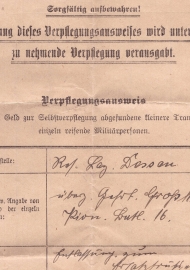 Sorgfältig aufbewahren!
ung dieses Verpflegungsausweises wird unter
zu nehmende Verpflegung verausgabt.
Verpflegungsausweis
Geld zur Selbstverpflegung abgefundene kleinere Tran
einzeln reisende Militärpersonen.
telle:
Res. Laz. Dessau
s. Angabe von
der einzeln
Pion. Batl. 16.
Entlassung, zum